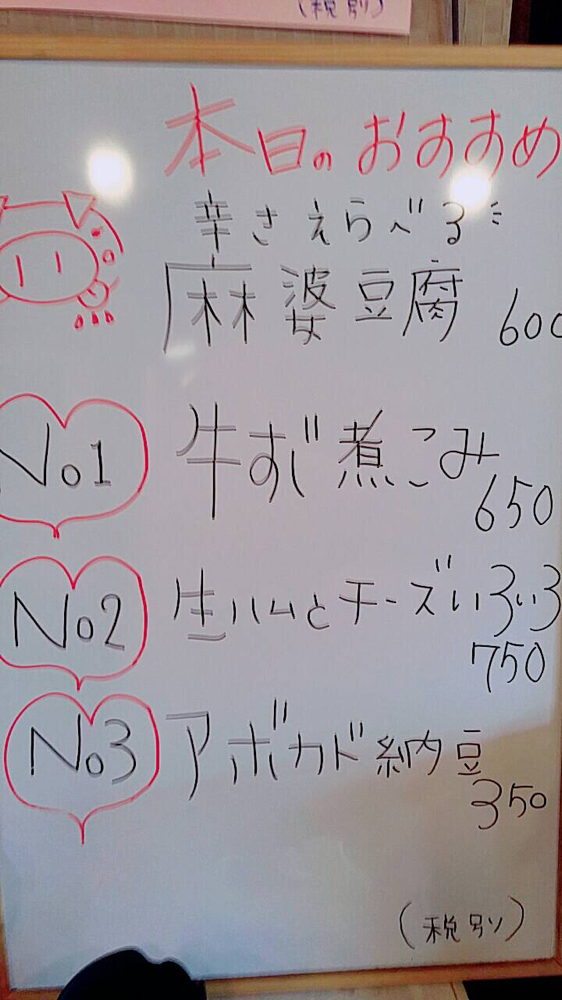 (税別)
本日のおすすめ
辛さえらべる
麻婆豆腐 600
No1 牛すじ煮こみ
650
No2 生ハムとチーズいろいろ
750
No3 アボカド納豆
350
(税別)